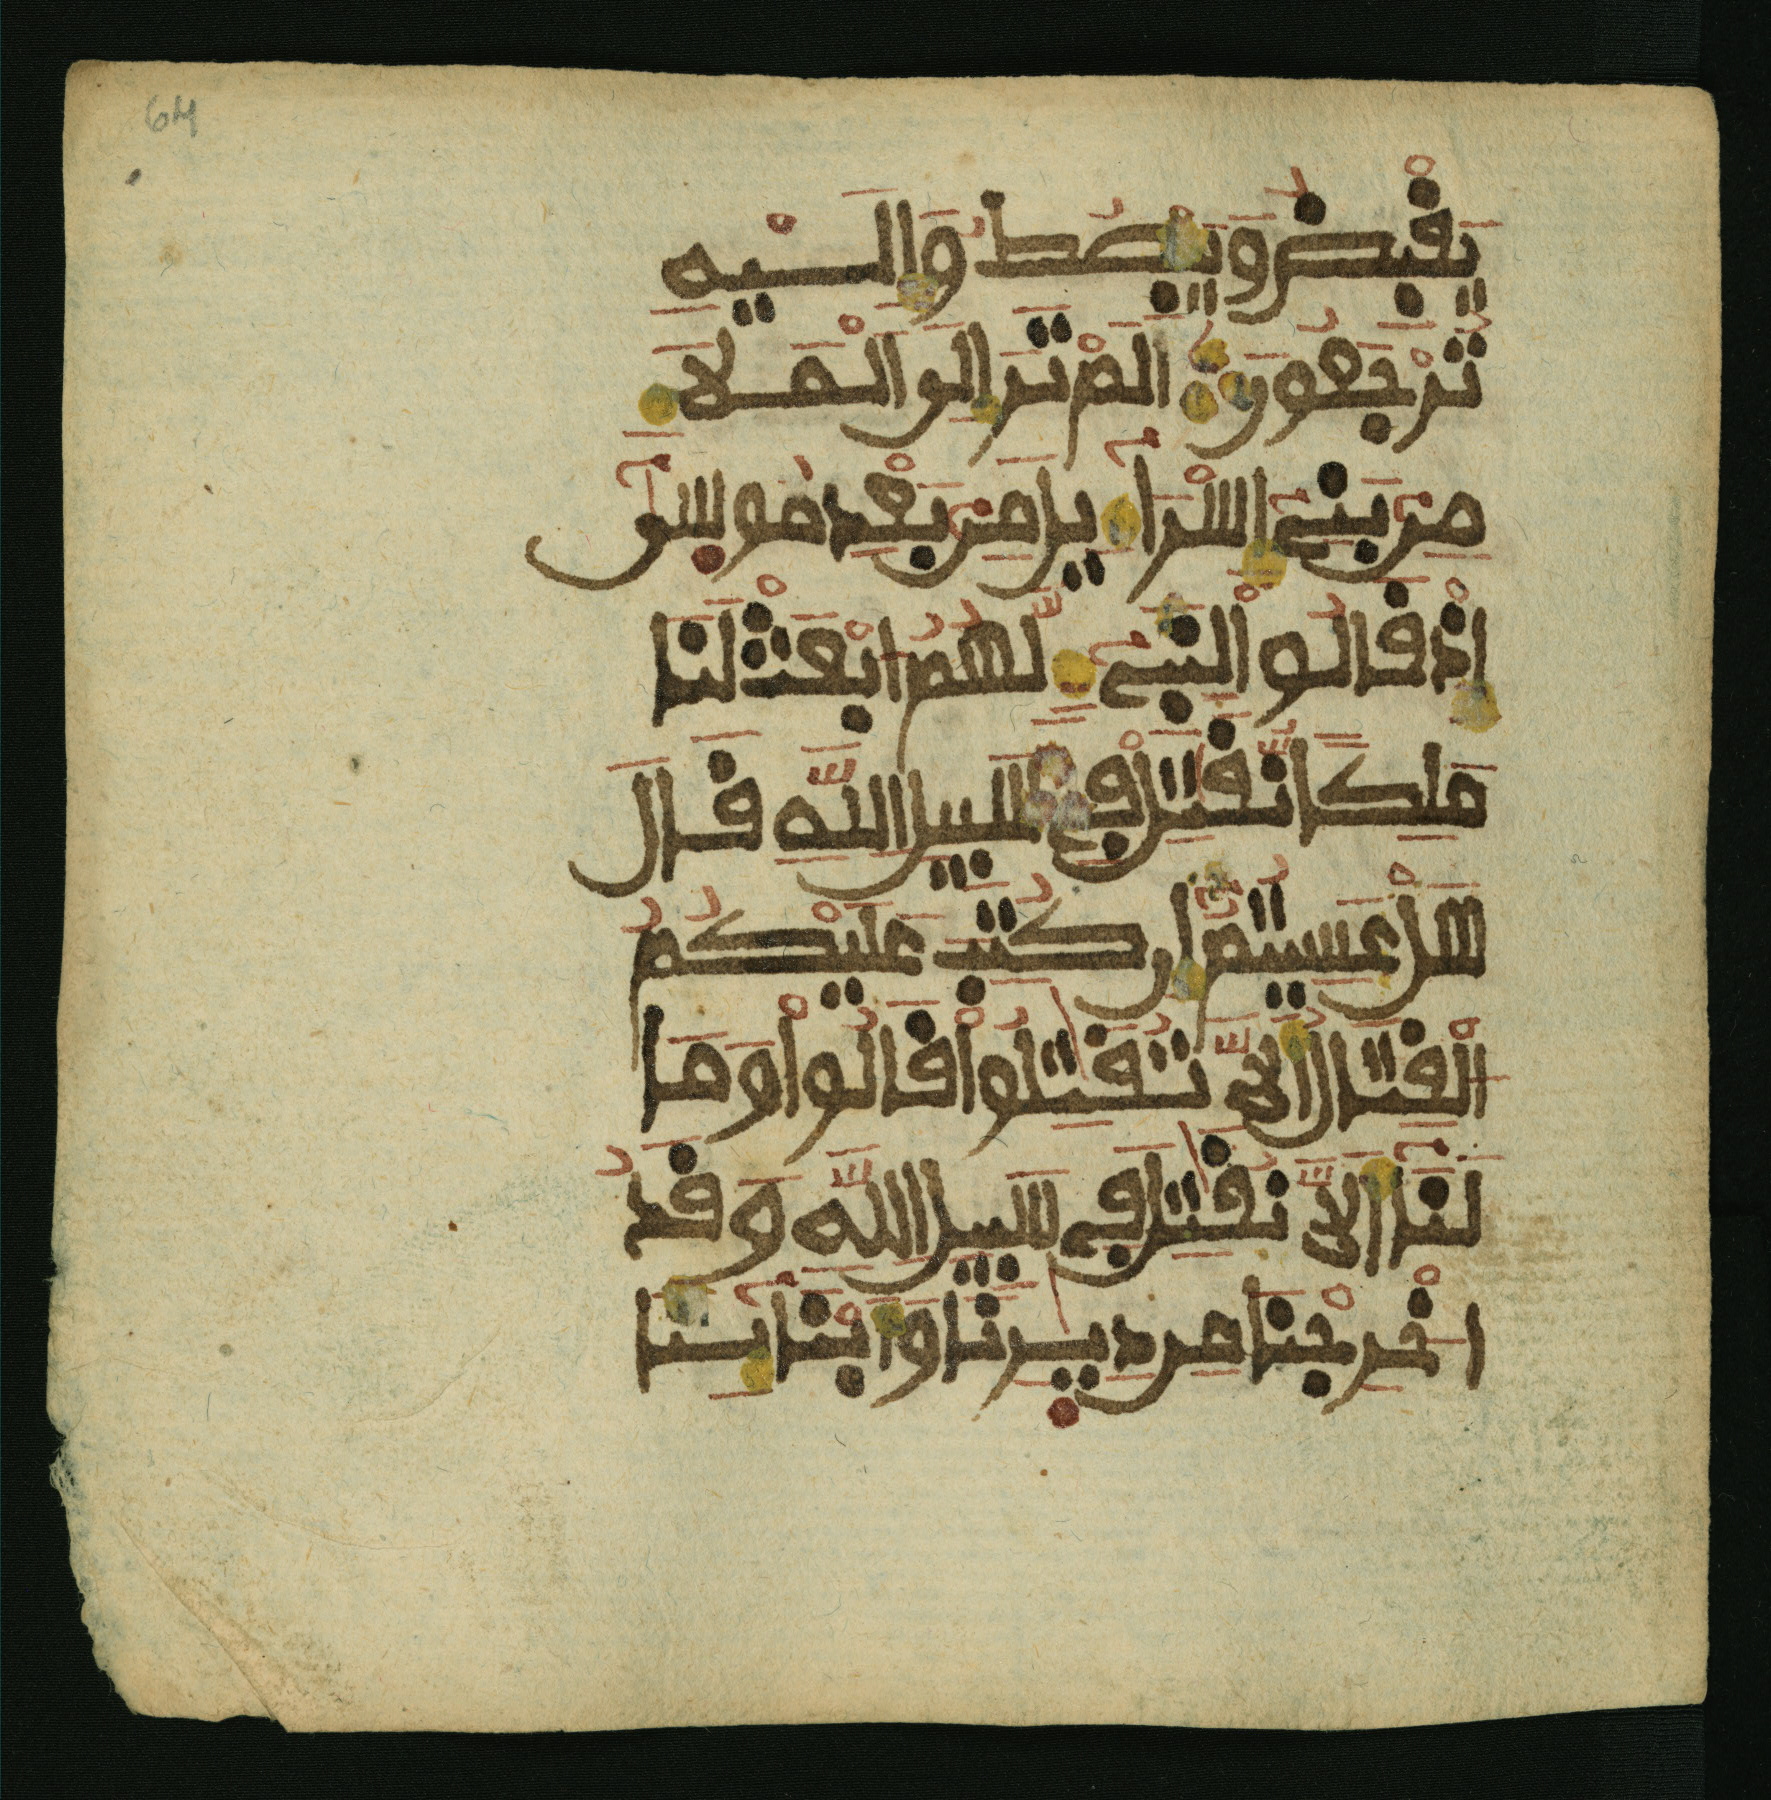 64
يَقْبِضُ وَيَبْصُطُ وَإِلَيْهِ
تُرْجَعُونَ أَلَمْ تَرَ إِلَى ٱلْمَلَإِ
مِنۢ بَنِىٓ إِسْرَآءِيلَ مِنۢ بَعْدِ مُوسَىٰٓ
إِذْ قَالُوا۟ لِنَبِىٓءٍ لَّهُمُ ٱبْعَثْ لَنَا
مَلِكًا نُّقَٰتِلْ فِى سَبِيلِ ٱللَّهِ قَالَ
هَلْ عَسِيتُمُۥٓ إِن كُتِبَ عَلَيْكُمُ
ٱلْقِتَالُ أَلَّا تُقَٰتِلُوا۟ قَالُوا۟ وَمَا
لَنَآ أَلَّا نُقَٰتِلَ فِى سَبِيلِ ٱللَّهِ وَقَدُ
اخْرِجْنَا مِن دِيَٰرِنَا وَأَبْنَآئِنَا